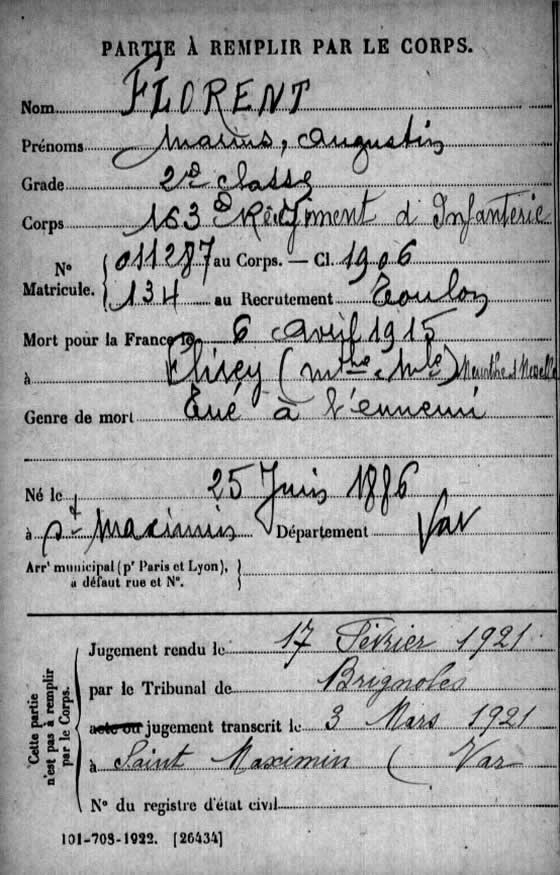 PARTIE À REMPLIR PAR LE CORPS.
Nom FLORENT
Prénoms Marius, Augustin
Grade 2e classe
Corps 163e Régiment d'Infanterie
No Matricule. 011287 au Corps. — Cl. 1906
134 au Recrutement Toulon
Mort pour la France le 6 Avril 1915
à Flirey (Mthe & Mlle) Meurthe et Moselle
Genre de mort Tué à l'ennemi
Né le 25 Juin 1886
à St Maximin Département Var
Arrt municipal (pr Paris et Lyon),
à défaut rue et No.
Cette partie n'est pas à remplir par le Corps.
Jugement rendu le 17 Février 1921
par le Tribunal de Brignoles
acte ou jugement transcrit le 3 Mars 1921
à Saint Maximin (Var
No du registre d'état civil
101-708-1922. [26434]